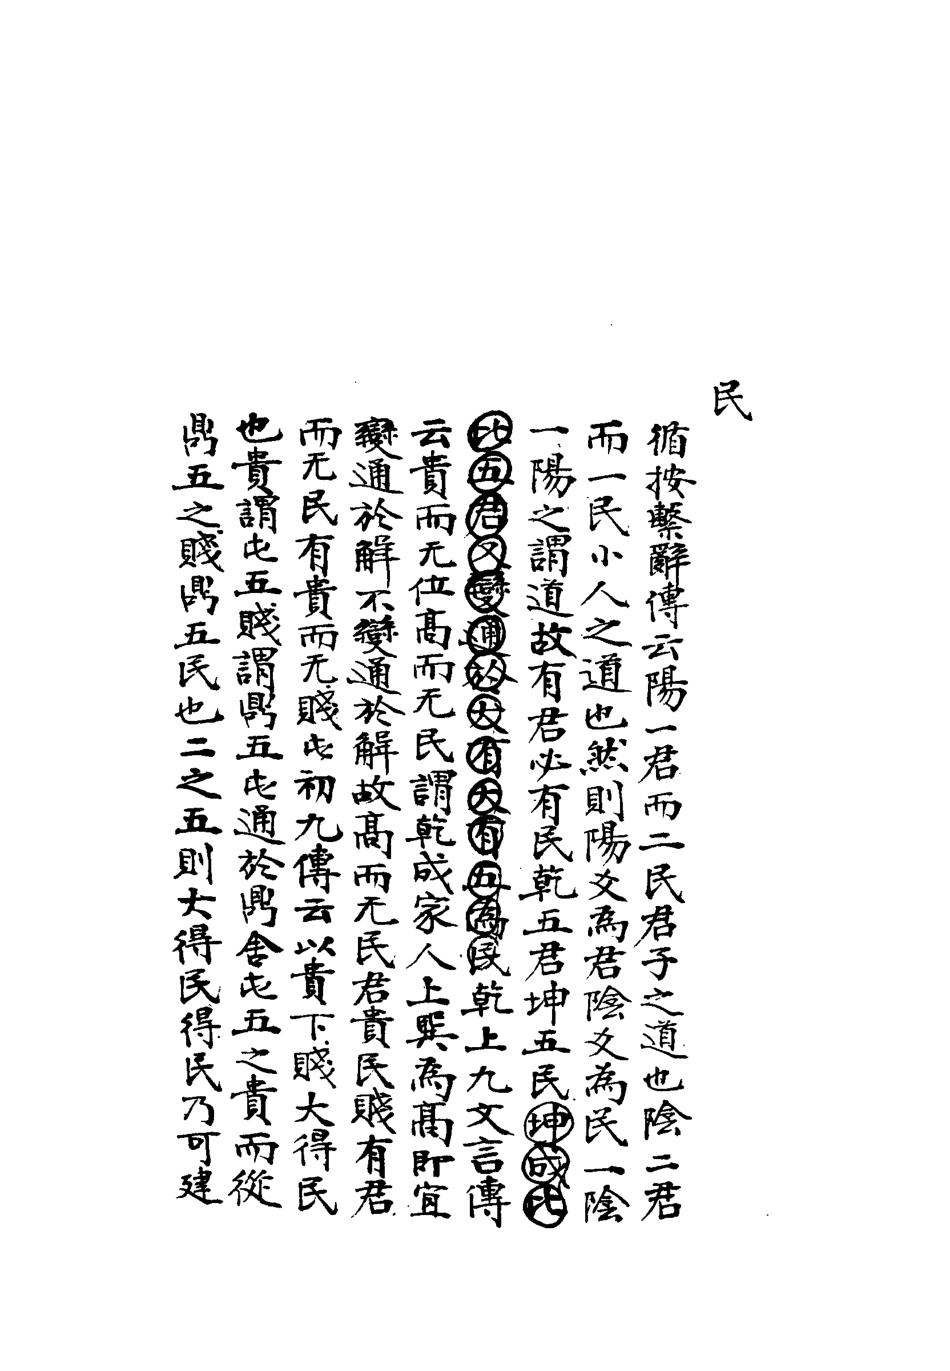 民
循按繫辭傳云陽一君而二民君子之道也陰二君
而一民小人之道也然則陽爻為君陰爻為民一陰
一陽之謂道故有君必有民乾五君坤五民坤成比
比五君又變通於大有大有五為民乾上九文言傳
云貴而无位高而无民謂乾成家人上巽為高即宜
變通於解不變通於解故高而无民君貴民賤有君
而无民有貴而无賤屯初九傳云以貴下賤大得民
也貴謂屯五賤謂鼎五屯通於鼎舍屯五之貴而從
鼎五之賤鼎五民也二之五則大得民得民乃可建